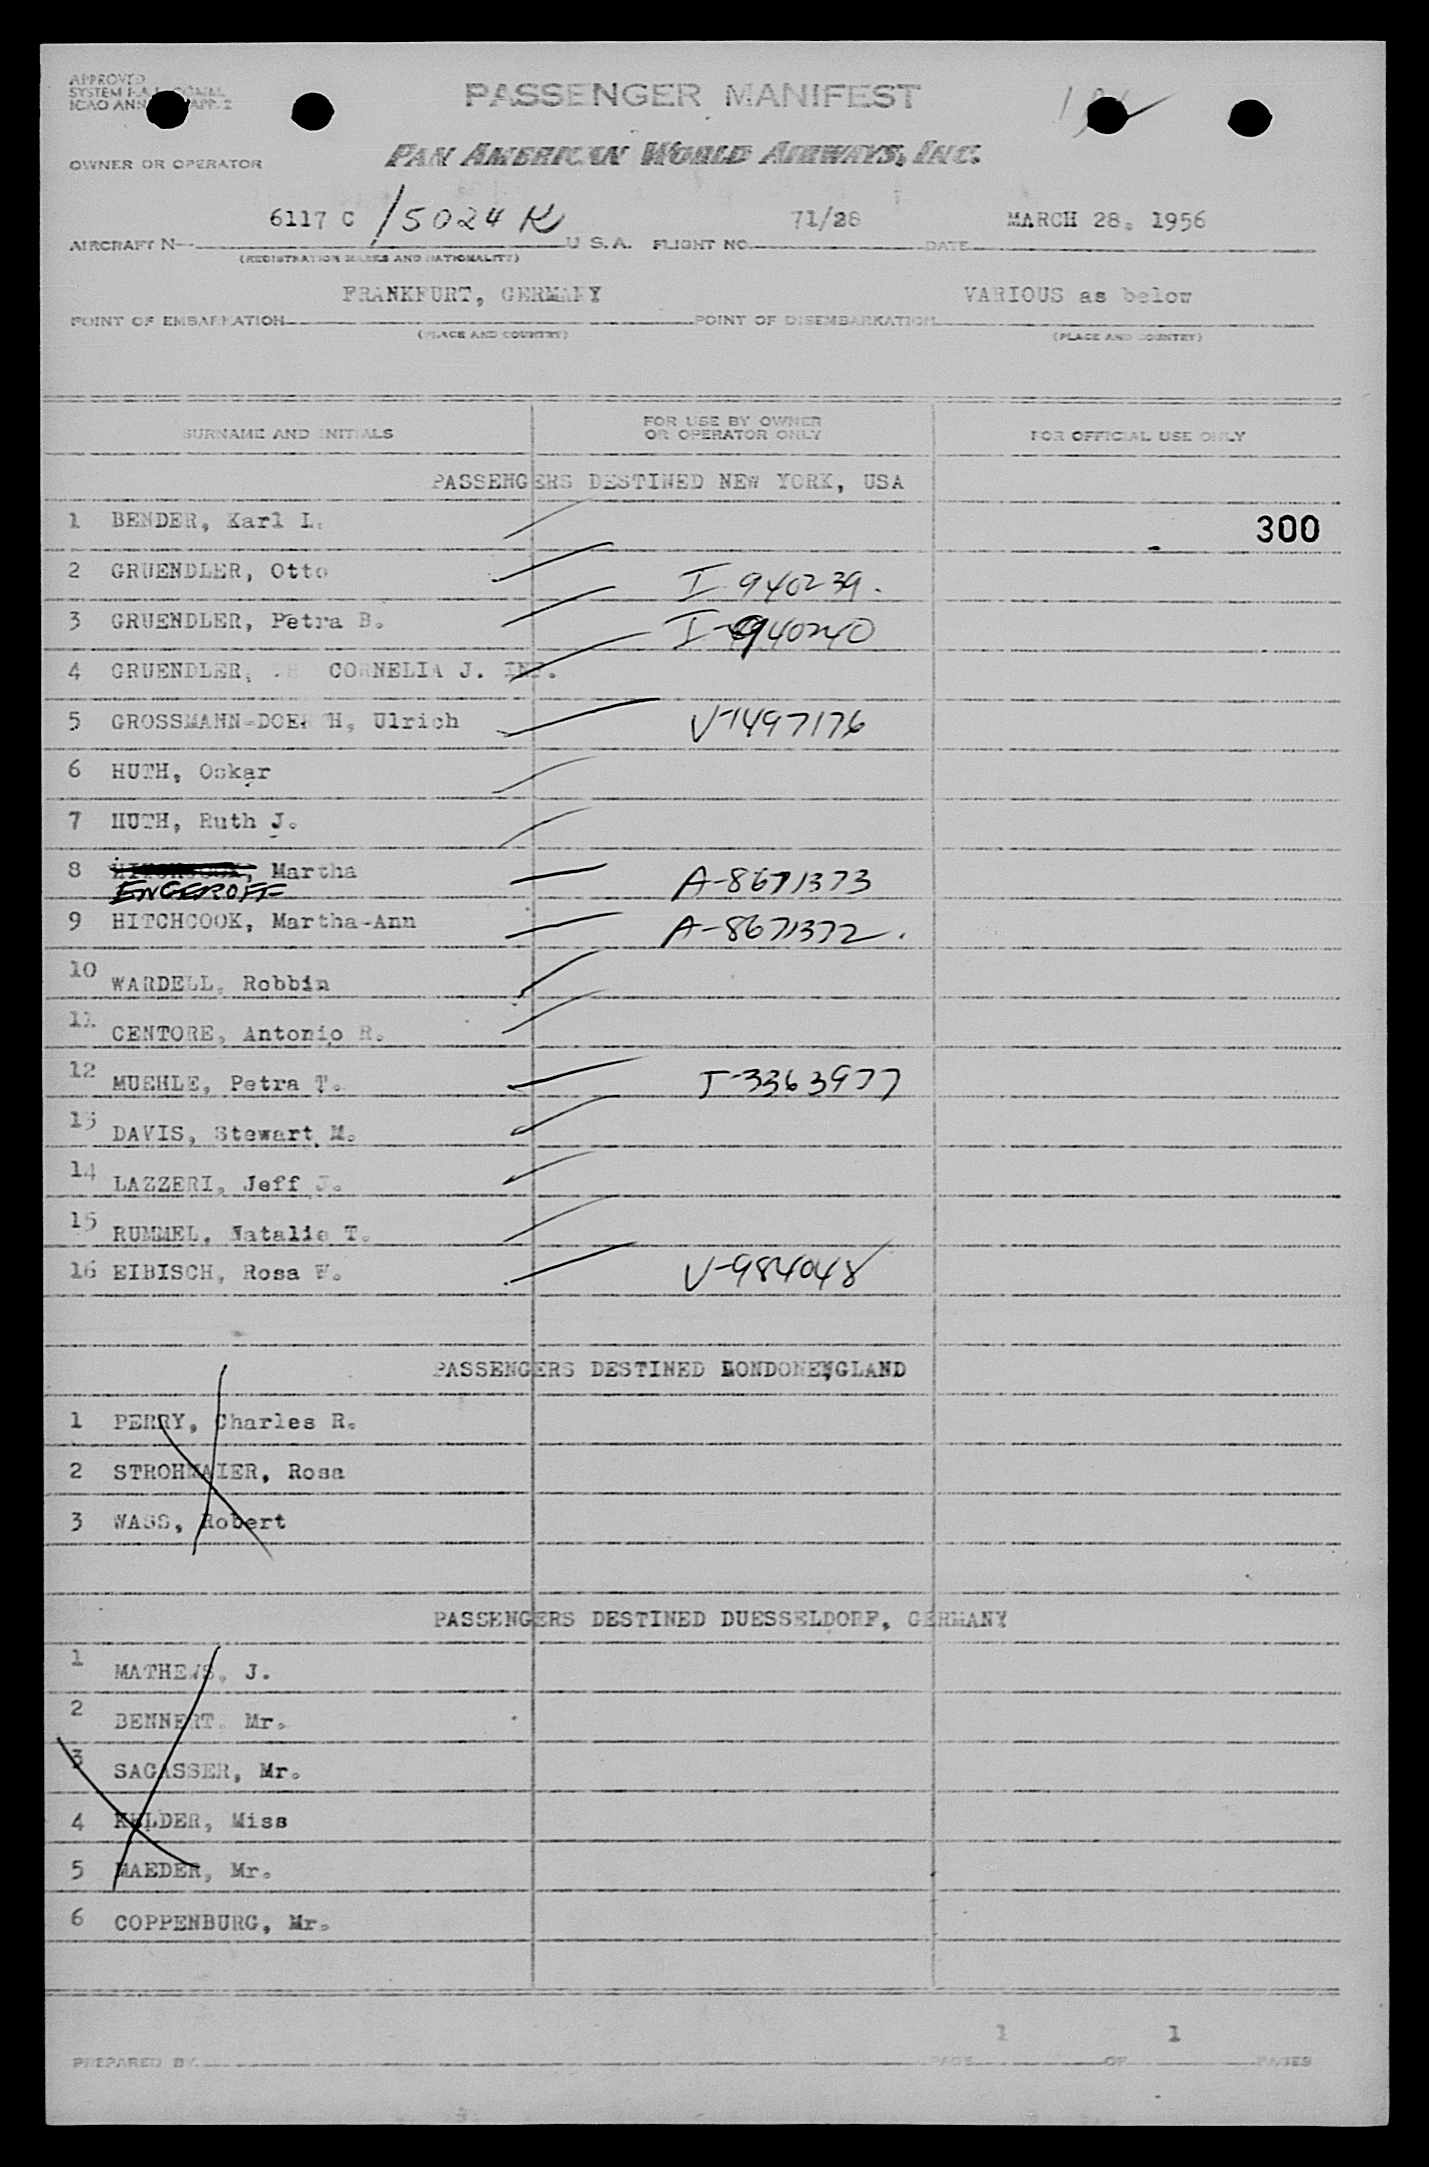 APPROVED
SYSTEM
ICAO ANN APP. 2
PASSENGER MANIFEST
OWNER OR OPERATOR
PAN AMERICAN WORLD AIRWAYS, INC.
6117 C /5024 K 71/28 MARCH 28, 1956
AIRCRAFT N- U.S.A. FLIGHT NO. DATE
(REGISTRATION MARKS AND NATIONALITY)
FRANKFURT, GERMANY VARIOUS as below
POINT OF EMBARKATION POINT OF DISEMBARKATION
(PLACE AND COUNTRY) (PLACE AND COUNTRY)
SURNAME AND INITIALS FOR USE BY OWNER OR OPERATOR ONLY FOR OFFICIAL USE ONLY
PASSENGERS DESTINED NEW YORK, USA
1 BENDER, Karl L. 300
2 GRUENDLER, Otto I-940239.
3 GRUENDLER, Petra B. I-940240
4 GRUENDLER, CORNELIA J. INF.
5 GROSSMANN-DOERTH, Ulrich V-1497176
6 HUTH, Oskar
7 HUTH, Ruth J.
8 HITCHCOOK, Martha A-8671373
ENGEROFF
9 HITCHCOOK, Martha-Ann A-8671372.
10 WARDELL, Robbin
11 CENTORE, Antonio R.
12 MUEHLE, Petra T. T-3363977
13 DAVIS, Stewart M.
14 LAZZERI, Jeff J.
15 RUMMEL, Natalie T.
16 EIBISCH, Rosa W. V-984048
PASSENGERS DESTINED LONDON,ENGLAND
1 PERRY, Charles R.
2 STROHMAIER, Rosa
3 WASS, Robert
PASSENGERS DESTINED DUESSELDORF, GERMANY
1 MATHEWS, J.
2 BENNERT. Mr.
3 SAGASSER, Mr.
4 KELDER, Miss
5 MAEDER, Mr.
6 COPPENBURG, Mr.
1 1
PREPARED BY PAGE OF PAGES